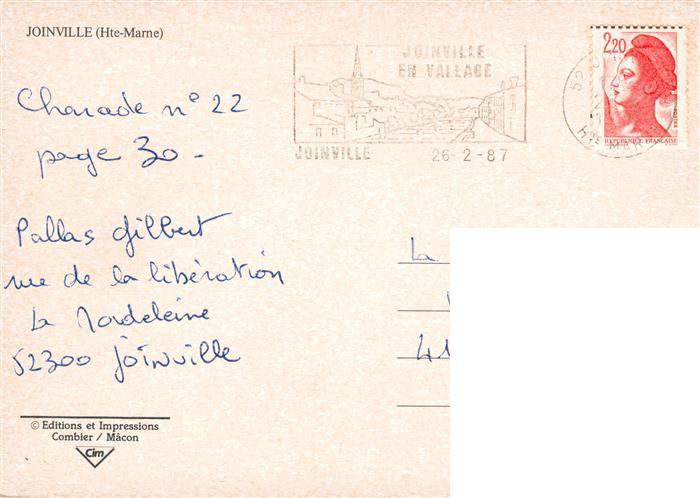 JOINVILLE (Hte-Marne)
JOINVILLE
EN VALLAGE
JOINVILLE 26-2-87
2,20
REPUBLIQUE FRANCAISE
52
Charade n° 22
page 30 -
Pallas Gilbert
rue de la libération
La Madeleine
52300 Joinville
La
41
© Editions et Impressions
Combier / Mâcon
Cim